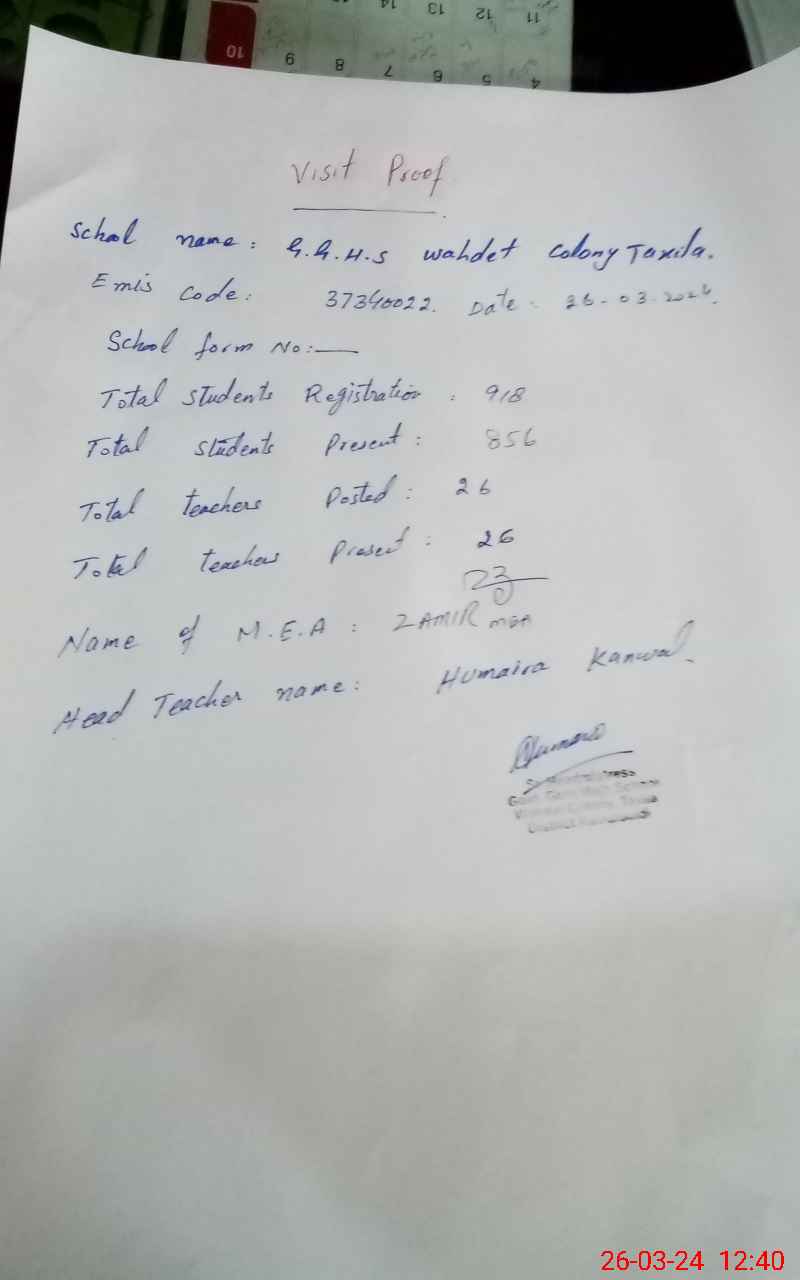 11 12 13 14
10 9 8 7 6 5 4
Visit Proof
School name: G.G.H.S wahdet Colony Taxila.
Emis Code: 37340022. Date - 26-03-2024.
School form No:—
Total students Registration : 918
Total students Present : 856
Total teachers Posted : 26
Total teachers Present : 26
Name of M.E.A : ZAMIR MEA
Head Teacher name: Humaira Kanwal.
26-03-24 12:40